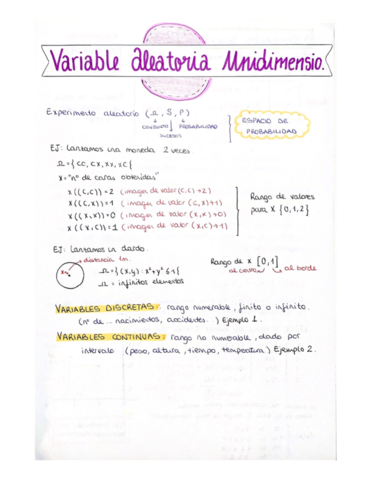 Variable Aleatoria Unidimensio.
Experimento aleatorio (Ω, S, P)
CONJUNTO PROBABILIDAD
SUCESOS
ESPACIO DE
PROBABILIDAD
EJ: Lanzamos una moneda 2 veces.
Ω = { CC, CX, XX, XC }
X = "nº de caras obtenidas"
X((C,C)) = 2 (imagen de valor (C,C) → 2)
X((C,X)) = 1 (imagen de valor (C,X) → 1)
X((X,X)) = 0 (imagen de valor (X,X) → 0)
X((X,C)) = 1 (imagen de valor (X,C) → 1)
Rango de valores
para X {0,1,2}
EJ: Lanzamos un dardo.
distancia
Ω = { (x,y) : x² + y² ≤ 1 }
Ω = infinitos elementos
Rango de X [0,1]
al centro al borde
VARIABLES DISCRETAS: rango numerable, finito o infinito.
(nº de ... nacimientos, accidentes. ) Ejemplo 1.
VARIABLES CONTINUAS: rango no numerable, dado por
intervalo (peso, altura, tiempo, temperatura) Ejemplo 2.